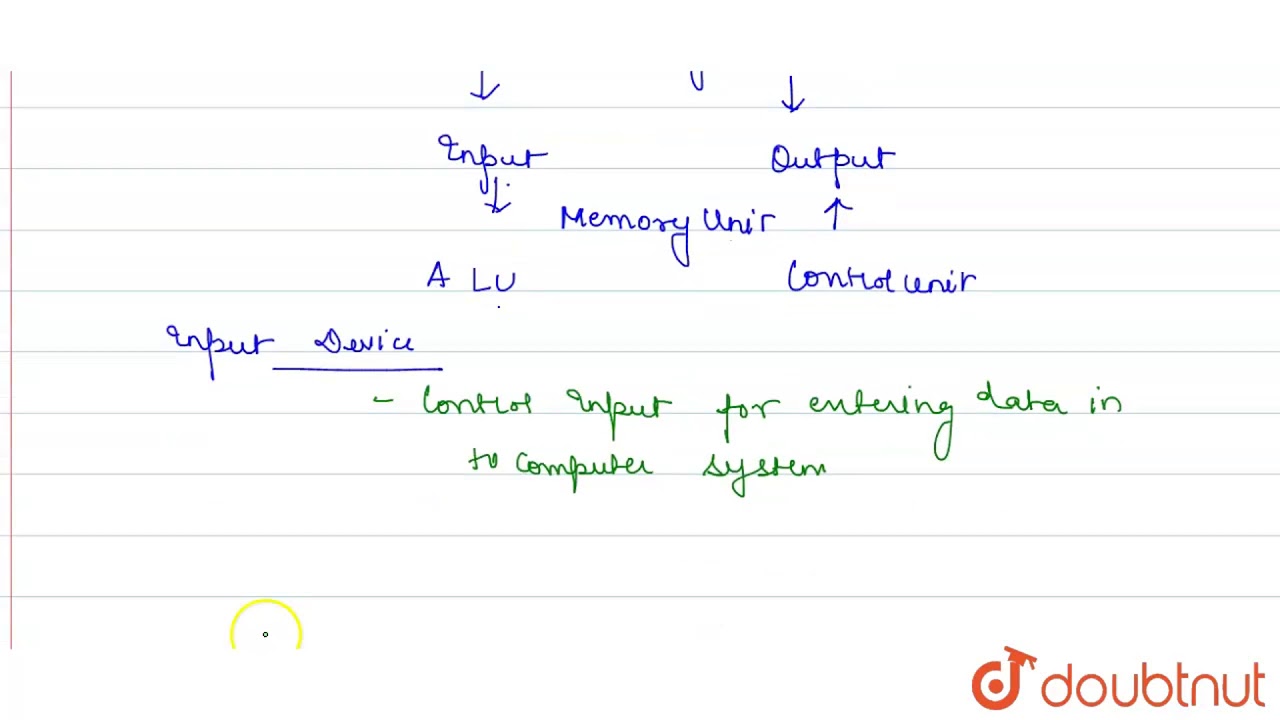 Input Output
Memory Unit
A LU Control unit
Input Device
- Control Input for entering data in
to computer system
doubtnut